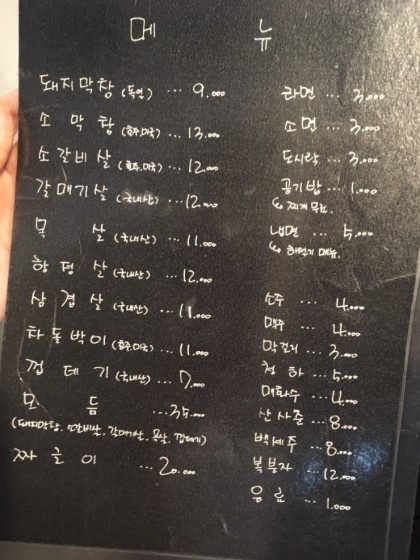 메 뉴
돼지막창 (독일) ... 9.000
소 막 창 (호주,미국) ... 13.000
소갈비살 (호주,미국) ... 12.000
갈매기살 (국내산) ... 12.000
목 살 (국내산) ... 11.000
항정살 (국내산) ... 12.000
삼겹살 (국내산) ... 11.000
차돌박이 (호주,미국) ... 11.000
껍데기 (국내산) ... 7.000
모 듬 ... 35.000
(돼지막창, 소갈비살, 갈매기살, 목살, 껍데기)
짜글이 ... 20.000
라면 ... 3.000
소면 ... 3.000
도시락 ... 3.000
공기밥 ... 1.000
찌개 무료.
냉면 ... 5.000
하절기 메뉴.
소주 ... 4.000
맥주 ... 4.000
막걸리 ... 3.000
청하 ... 5.000
매화수 ... 4.000
산사춘 ... 8.000
백세주 ... 8.000
복분자 ... 12.000
음료 ... 1.000